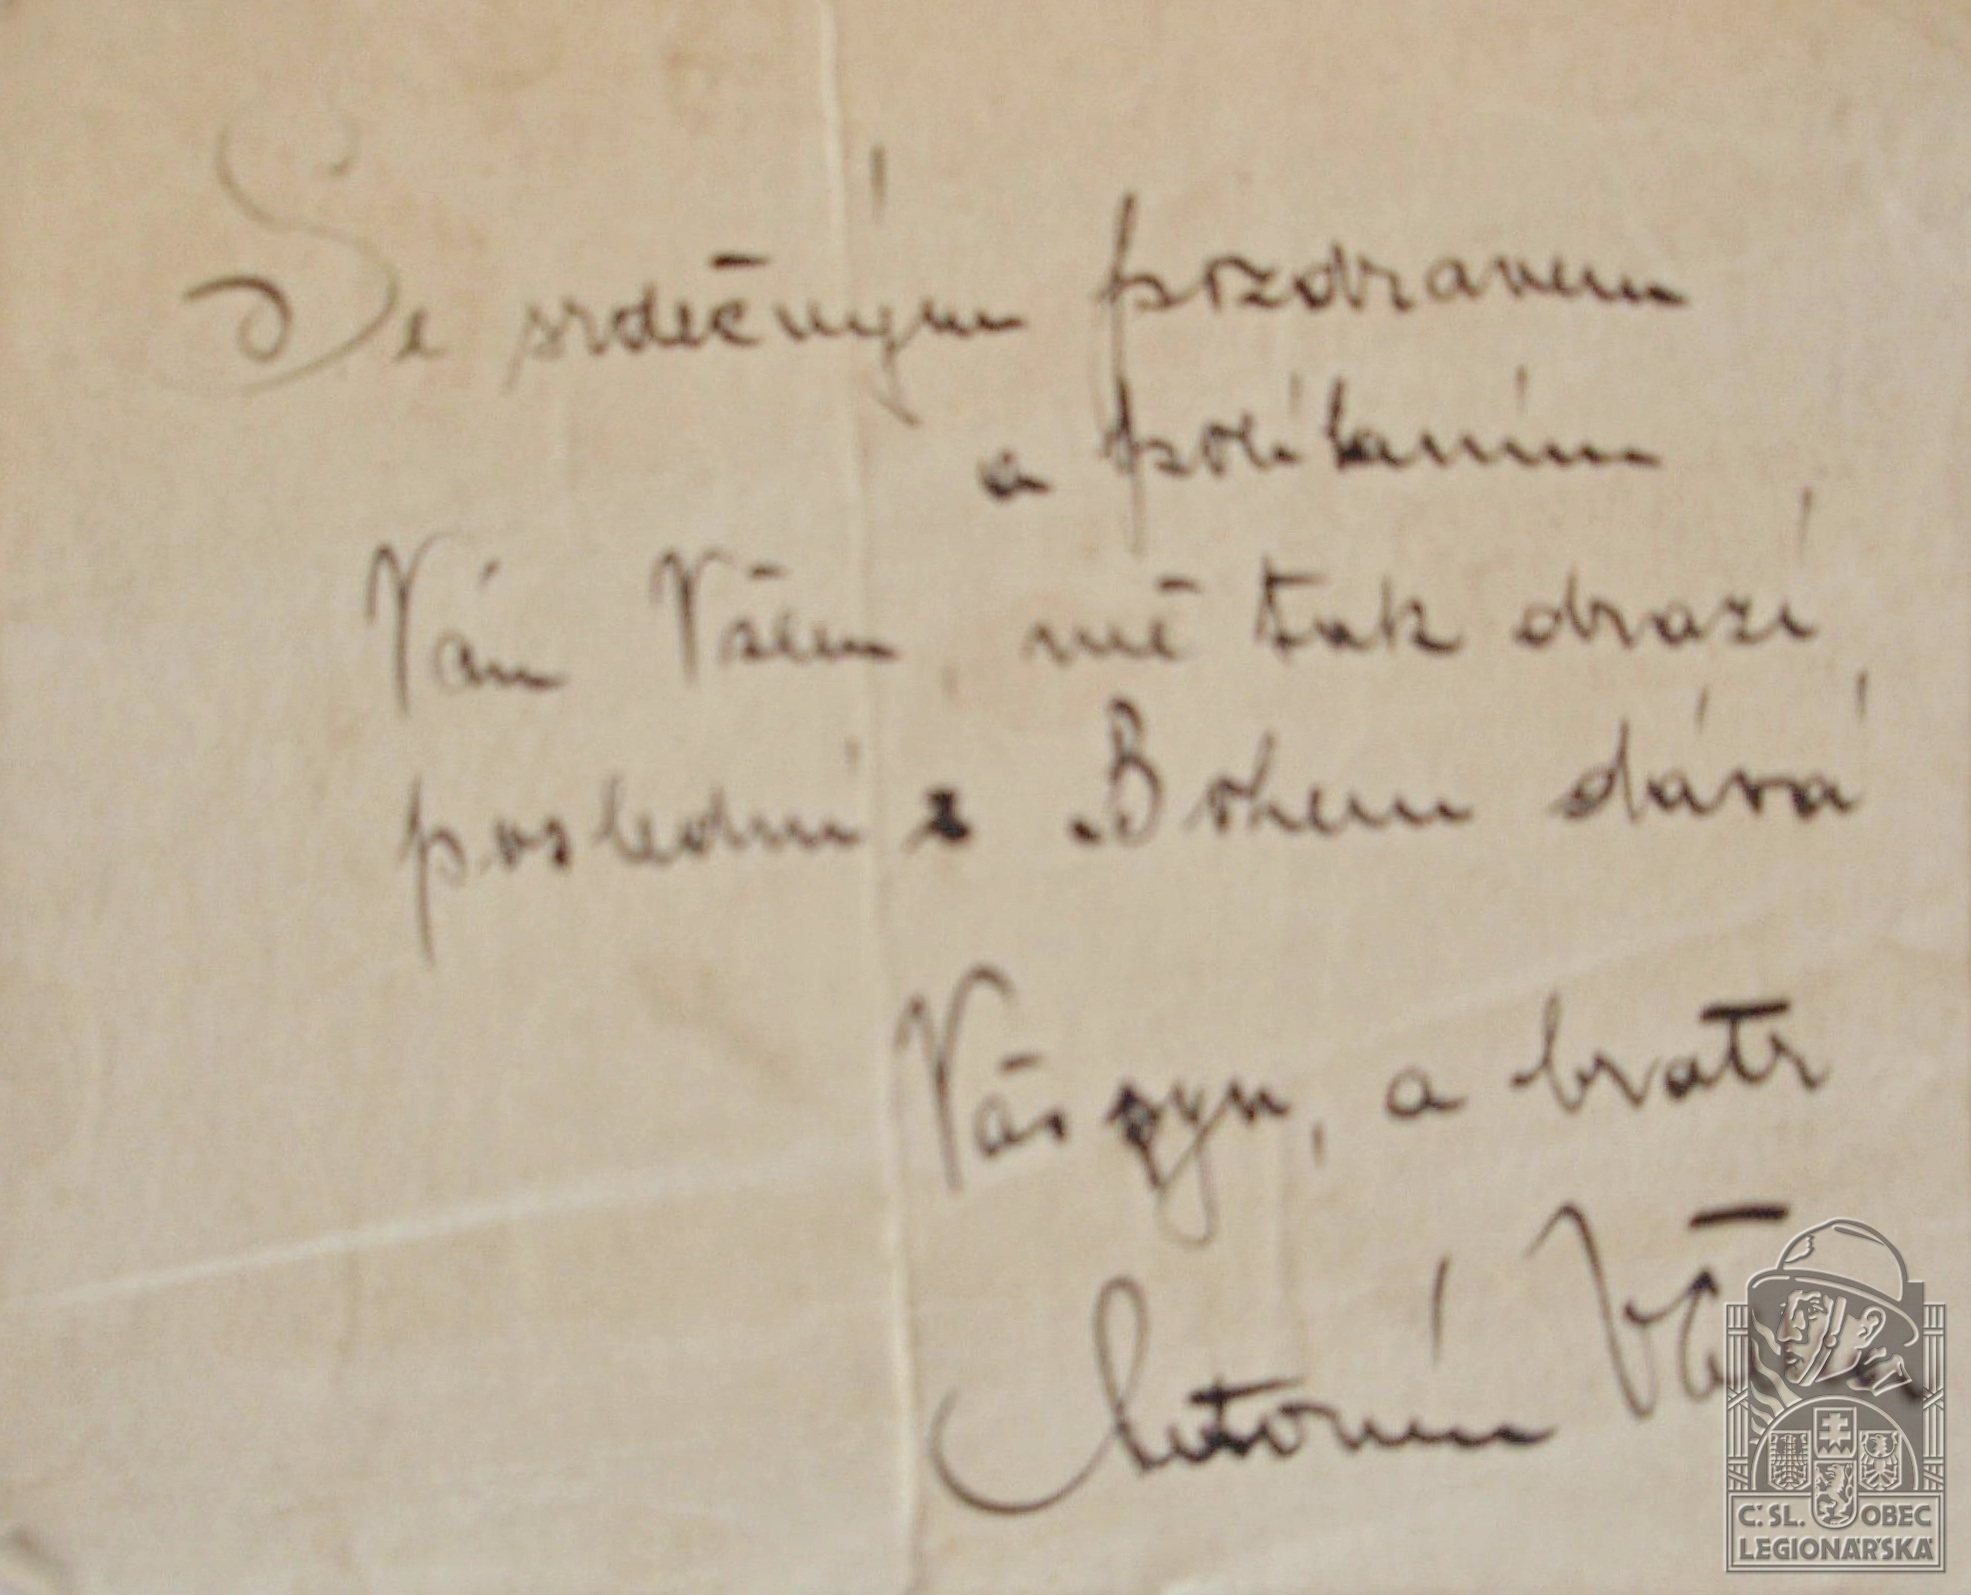 Se srdečným pozdravem
a políbením
Vám Všem, mě tak drazí
poslední s Bohem dává
Váš syn, a bratr
Antonín
Č. SL. OBEC
LEGIONÁŘSKÁ